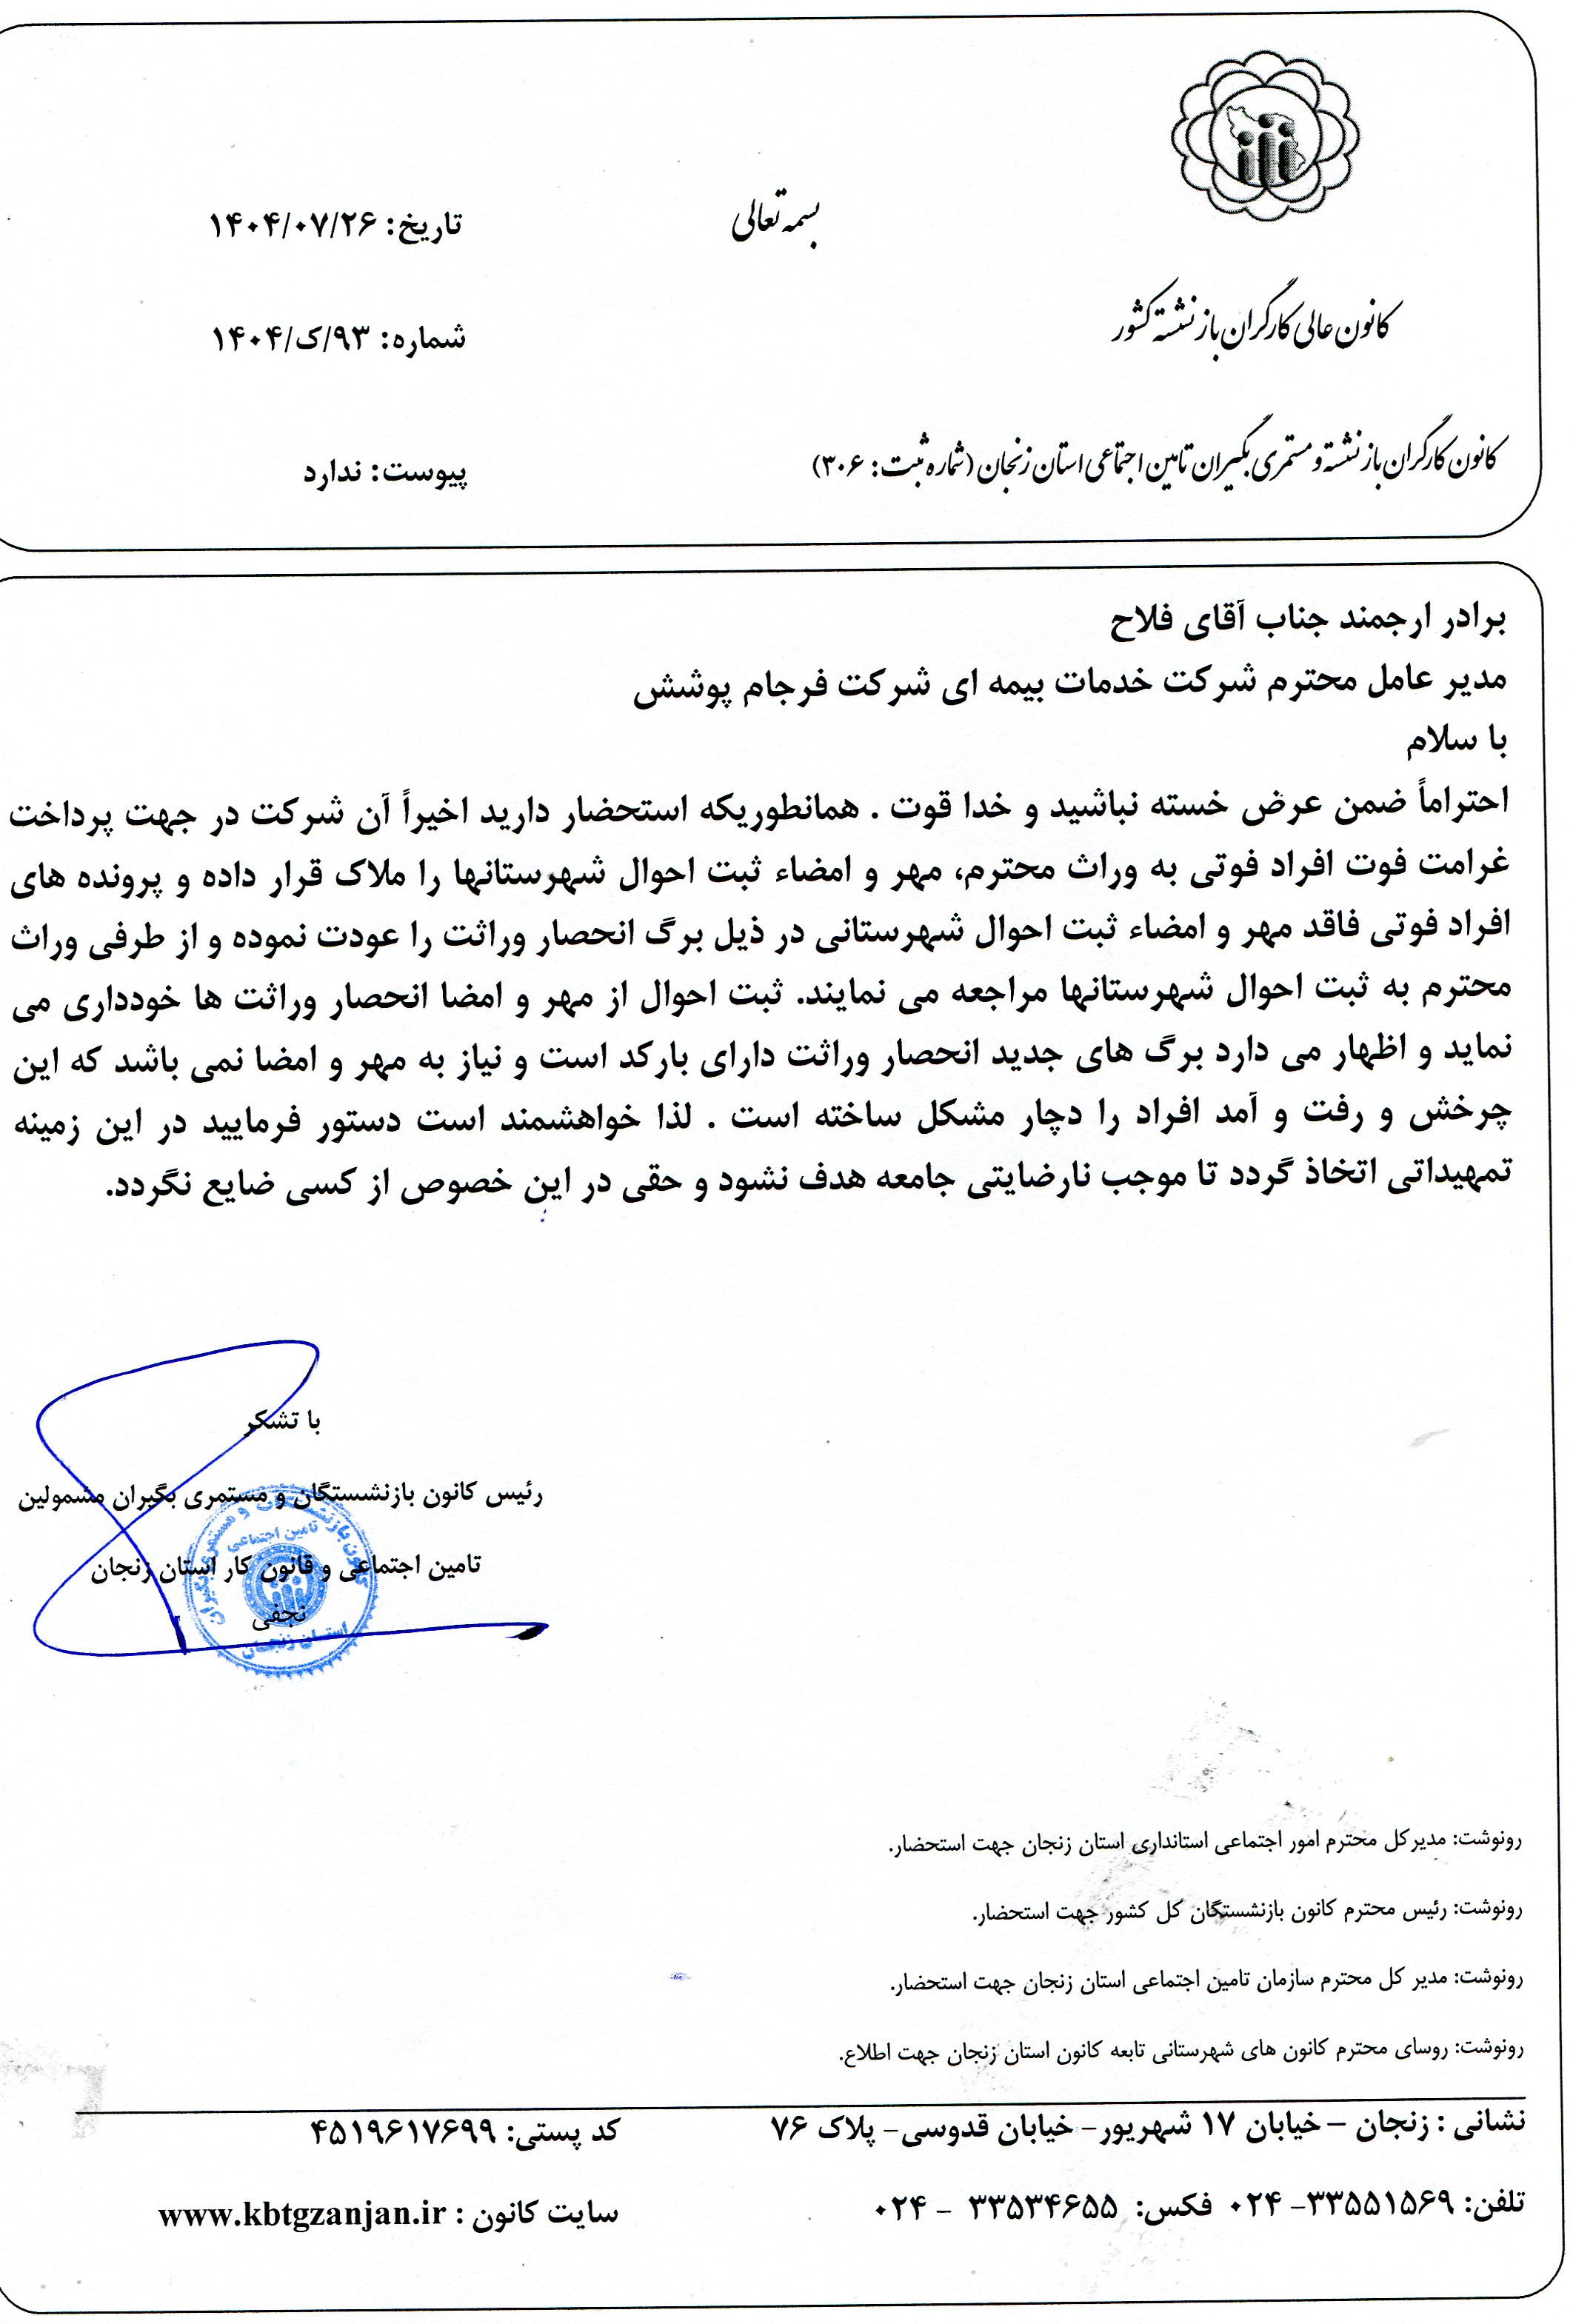 بسمه تعالی
کانون عالی کارگران بازنشسته کشور
کانون کارگران بازنشسته و مستمری بگیران تامین اجتماعی استان زنجان (شماره ثبت: ۳۰۶)
تاریخ: ۱۴۰۴/۰۷/۲۶
شماره: ۹۳/ک/۱۴۰۴
پیوست: ندارد
برادر ارجمند جناب آقای فلاح
مدیر عامل محترم شرکت خدمات بیمه ای شرکت فرجام پوشش
با سلام
احتراماً ضمن عرض خسته نباشید و خدا قوت . همانطوریکه استحضار دارید اخیراً آن شرکت در جهت پرداخت
غرامت فوت افراد فوتی به وراث محترم، مهر و امضاء ثبت احوال شهرستانها را ملاک قرار داده و پرونده های
افراد فوتی فاقد مهر و امضاء ثبت احوال شهرستانی در ذیل برگ انحصار وراثت را عودت نموده و از طرفی وراث
محترم به ثبت احوال شهرستانها مراجعه می نمایند. ثبت احوال از مهر و امضا انحصار وراثت ها خودداری می
نماید و اظهار می دارد برگ های جدید انحصار وراثت دارای بارکد است و نیاز به مهر و امضا نمی باشد که این
چرخش و رفت و آمد افراد را دچار مشکل ساخته است . لذا خواهشمند است دستور فرمایید در این زمینه
تمهیداتی اتخاذ گردد تا موجب نارضایتی جامعه هدف نشود و حقی در این خصوص از کسی ضایع نگردد.
با تشکر
رئیس کانون بازنشستگان و مستمری بگیران مشمولین
تامین اجتماعی و قانون کار استان زنجان
نجفی
کانون بازنشستگان و مستمری بگیران
تامین اجتماعی
استان زنجان
رونوشت: مدیرکل محترم امور اجتماعی استانداری استان زنجان جهت استحضار.
رونوشت: رئیس محترم کانون بازنشستگان کل کشور جهت استحضار.
رونوشت: مدیر کل محترم سازمان تامین اجتماعی استان زنجان جهت استحضار.
رونوشت: روسای محترم کانون های شهرستانی تابعه کانون استان زنجان جهت اطلاع.
نشانی : زنجان – خیابان ۱۷ شهریور- خیابان قدوسی- پلاک ۷۶
کد پستی: ۴۵۱۹۶۱۷۶۹۹
تلفن: ۳۳۵۵۱۵۶۹- ۰۲۴ فکس: ۳۳۵۳۴۶۵۵ - ۰۲۴
سایت کانون : www.kbtgzanjan.ir